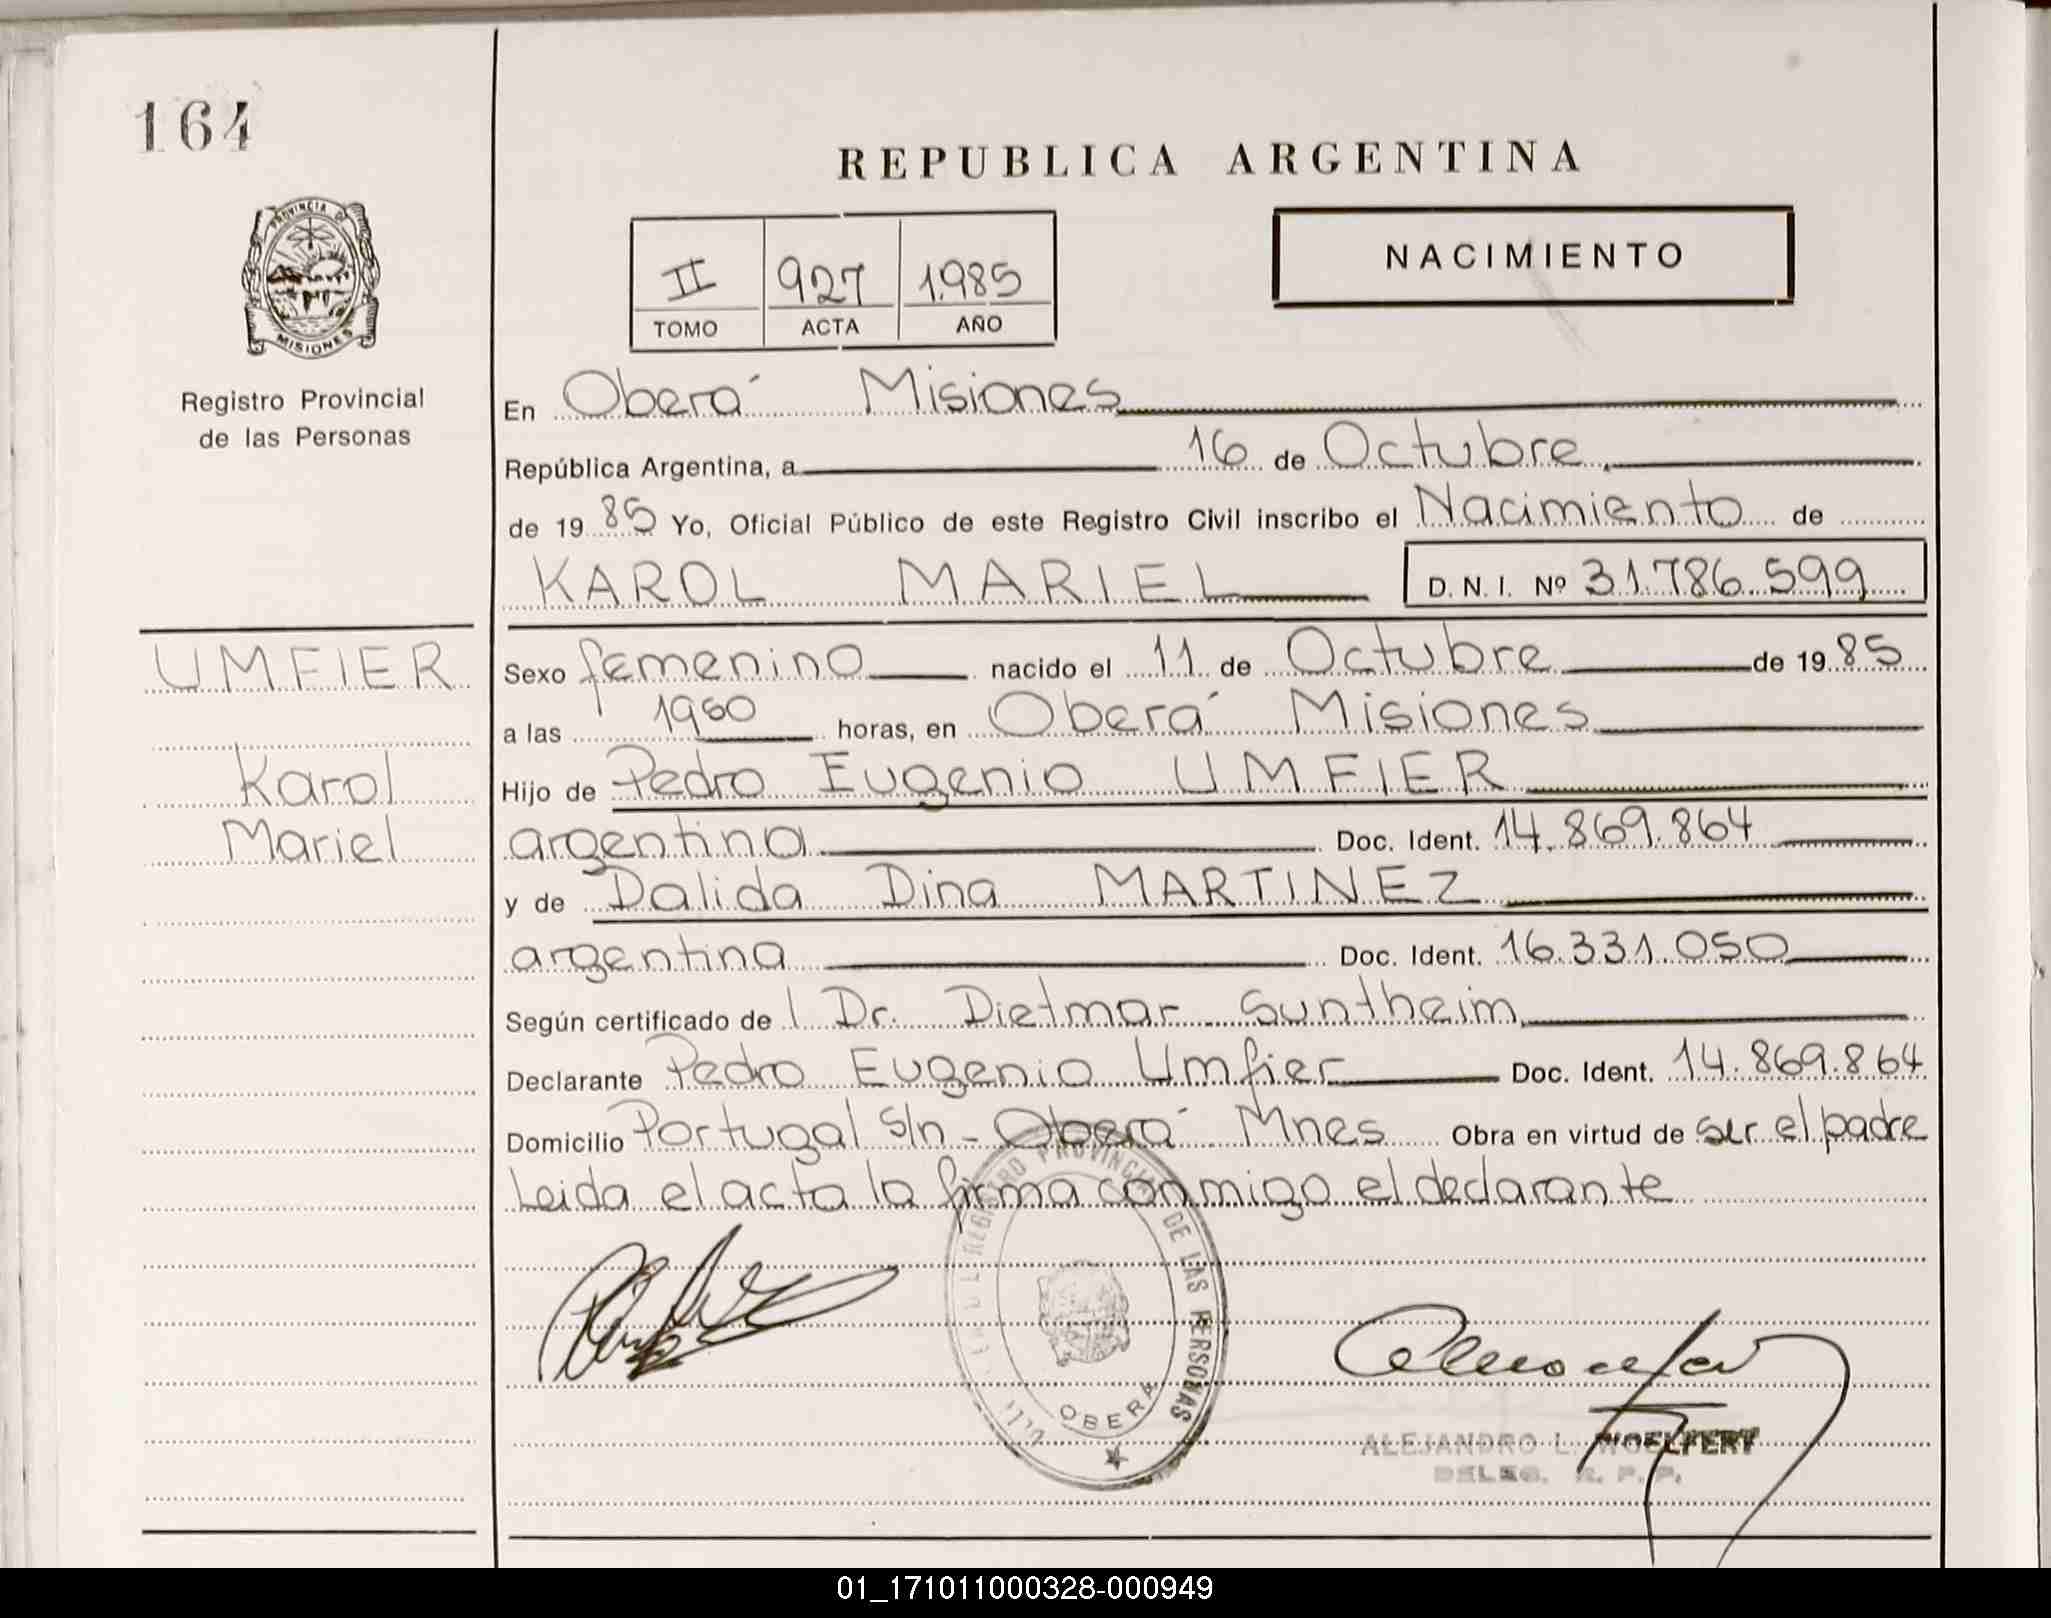 164
REPUBLICA ARGENTINA
II 927 1.985
TOMO ACTA AÑO
NACIMIENTO
PROVINCIA DE MISIONES
Registro Provincial
de las Personas
En Oberá Misiones
República Argentina, a 16 de Octubre
de 19 85 Yo, Oficial Público de este Registro Civil inscribo el Nacimiento de
KAROL MARIEL D. N. I. Nº 31.786.599
UMFIER
Karol
Mariel
Sexo femenino nacido el 11 de Octubre de 19 85
a las horas, en Oberá Misiones
Hijo de Pedro Eugenio UMFIER
argentina Doc. Ident. 14.869.864
y de Dalida Dina MARTINEZ
argentina Doc. Ident. 16.331.050
Según certificado de l Dr. Dietmar Suntheim
Declarante Pedro Eugenio Umfier Doc. Ident. 14.869.864
Domicilio Portugal s/n - Oberá Mnes Obra en virtud de ser el padre
Leida el acta la firma conmigo el declarante
REGISTRO PROVINCIAL DE LAS PERSONAS
OBERA
ALEJANDRO L. WOELFERT
DELEG. R. P. P.
01_171011000328-000949